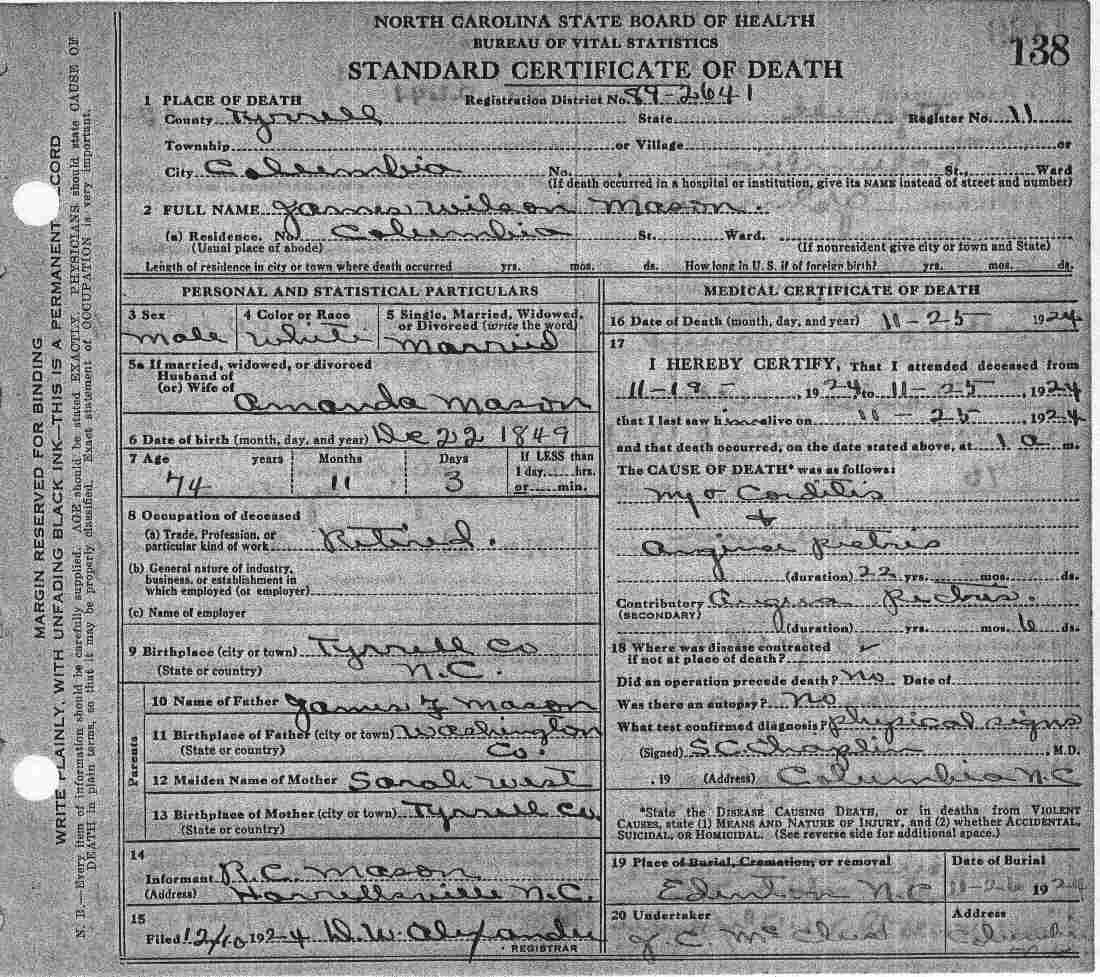 NORTH CAROLINA STATE BOARD OF HEALTH
BUREAU OF VITAL STATISTICS
138
STANDARD CERTIFICATE OF DEATH
1 PLACE OF DEATH Registration District No. 89-2641
County Tyrrell State Register No. 11
Township or Village or
City Columbia No. St., Ward
(If death occurred in a hospital or institution, give its NAME instead of street and number)
2 FULL NAME James Wilson Mason.
(a) Residence. No. Columbia St. Ward.
(Usual place of abode) (If nonresident give city or town and State)
Length of residence in city or town where death occurred yrs. mos. ds. How long in U.S. if of foreign birth? yrs. mos. ds.
PERSONAL AND STATISTICAL PARTICULARS
3 Sex 4 Color or Race 5 Single, Married, Widowed,
or Divorced (write the word)
Male White Married
5a If married, widowed, or divorced
Husband of
(or) Wife of
Amanda Mason
6 Date of birth (month, day, and year) Dec 22 1849
7 Age years Months Days If LESS than
1 day,.....hrs.
or.....min.
74 11 3
8 Occupation of deceased
(a) Trade, Profession, or
particular kind of work Retired.
(b) General nature of industry,
business, or establishment in
which employed (or employer)
(c) Name of employer
9 Birthplace (city or town) Tyrrell Co
(State or country) N.C.
Parents
10 Name of Father James F Mason
11 Birthplace of Father (city or town) Washington
(State or country) Co.
12 Maiden Name of Mother Sarah West
13 Birthplace of Mother (city or town) Tyrrell Co
(State or country)
14
Informant R.C. Mason
(Address) Harrellsville N.C.
15
Filed 12/10 1924 D.W. Alexander
REGISTRAR
MEDICAL CERTIFICATE OF DEATH
16 Date of Death (month, day, and year) 11-25 1924
17
I HEREBY CERTIFY, That I attended deceased from
11-19- 1924 to 11-25, 1924
that I last saw him alive on 11-25 1924
and that death occurred, on the date stated above, at 1 a m.
The CAUSE OF DEATH* was as follows:
Myo Corditis
+
Angina Pectris
(duration) 22 yrs. mos. ds.
Contributory Angina Pectris.
(SECONDARY)
(duration) yrs. mos. 6 ds.
18 Where was disease contracted
if not at place of death? ✓
Did an operation precede death? No Date of
Was there an autopsy? No
What test confirmed diagnosis? physical signs
(Signed) S.C. Chaplin, M.D.
, 19 (Address) Columbia N.C
*State the DISEASE CAUSING DEATH, or in deaths from VIOLENT
CAUSES, state (1) MEANS AND NATURE OF INJURY, and (2) whether ACCIDENTAL,
SUICIDAL, OR HOMICIDAL. (See reverse side for additional space.)
19 Place of Burial, Cremation, or removal Date of Burial
Edenton N.C 11-26 1924
20 Undertaker Address
J.C.
MARGIN RESERVED FOR BINDING
WRITE PLAINLY, WITH UNFADING BLACK INK—THIS IS A PERMANENT CORD
N. B.—Every item of information should be carefully supplied. AGE should be stated EXACTLY. PHYSICIANS should state CAUSE OF
DEATH in plain terms, so that it may be properly classified. Exact statement of OCCUPATION is very important.